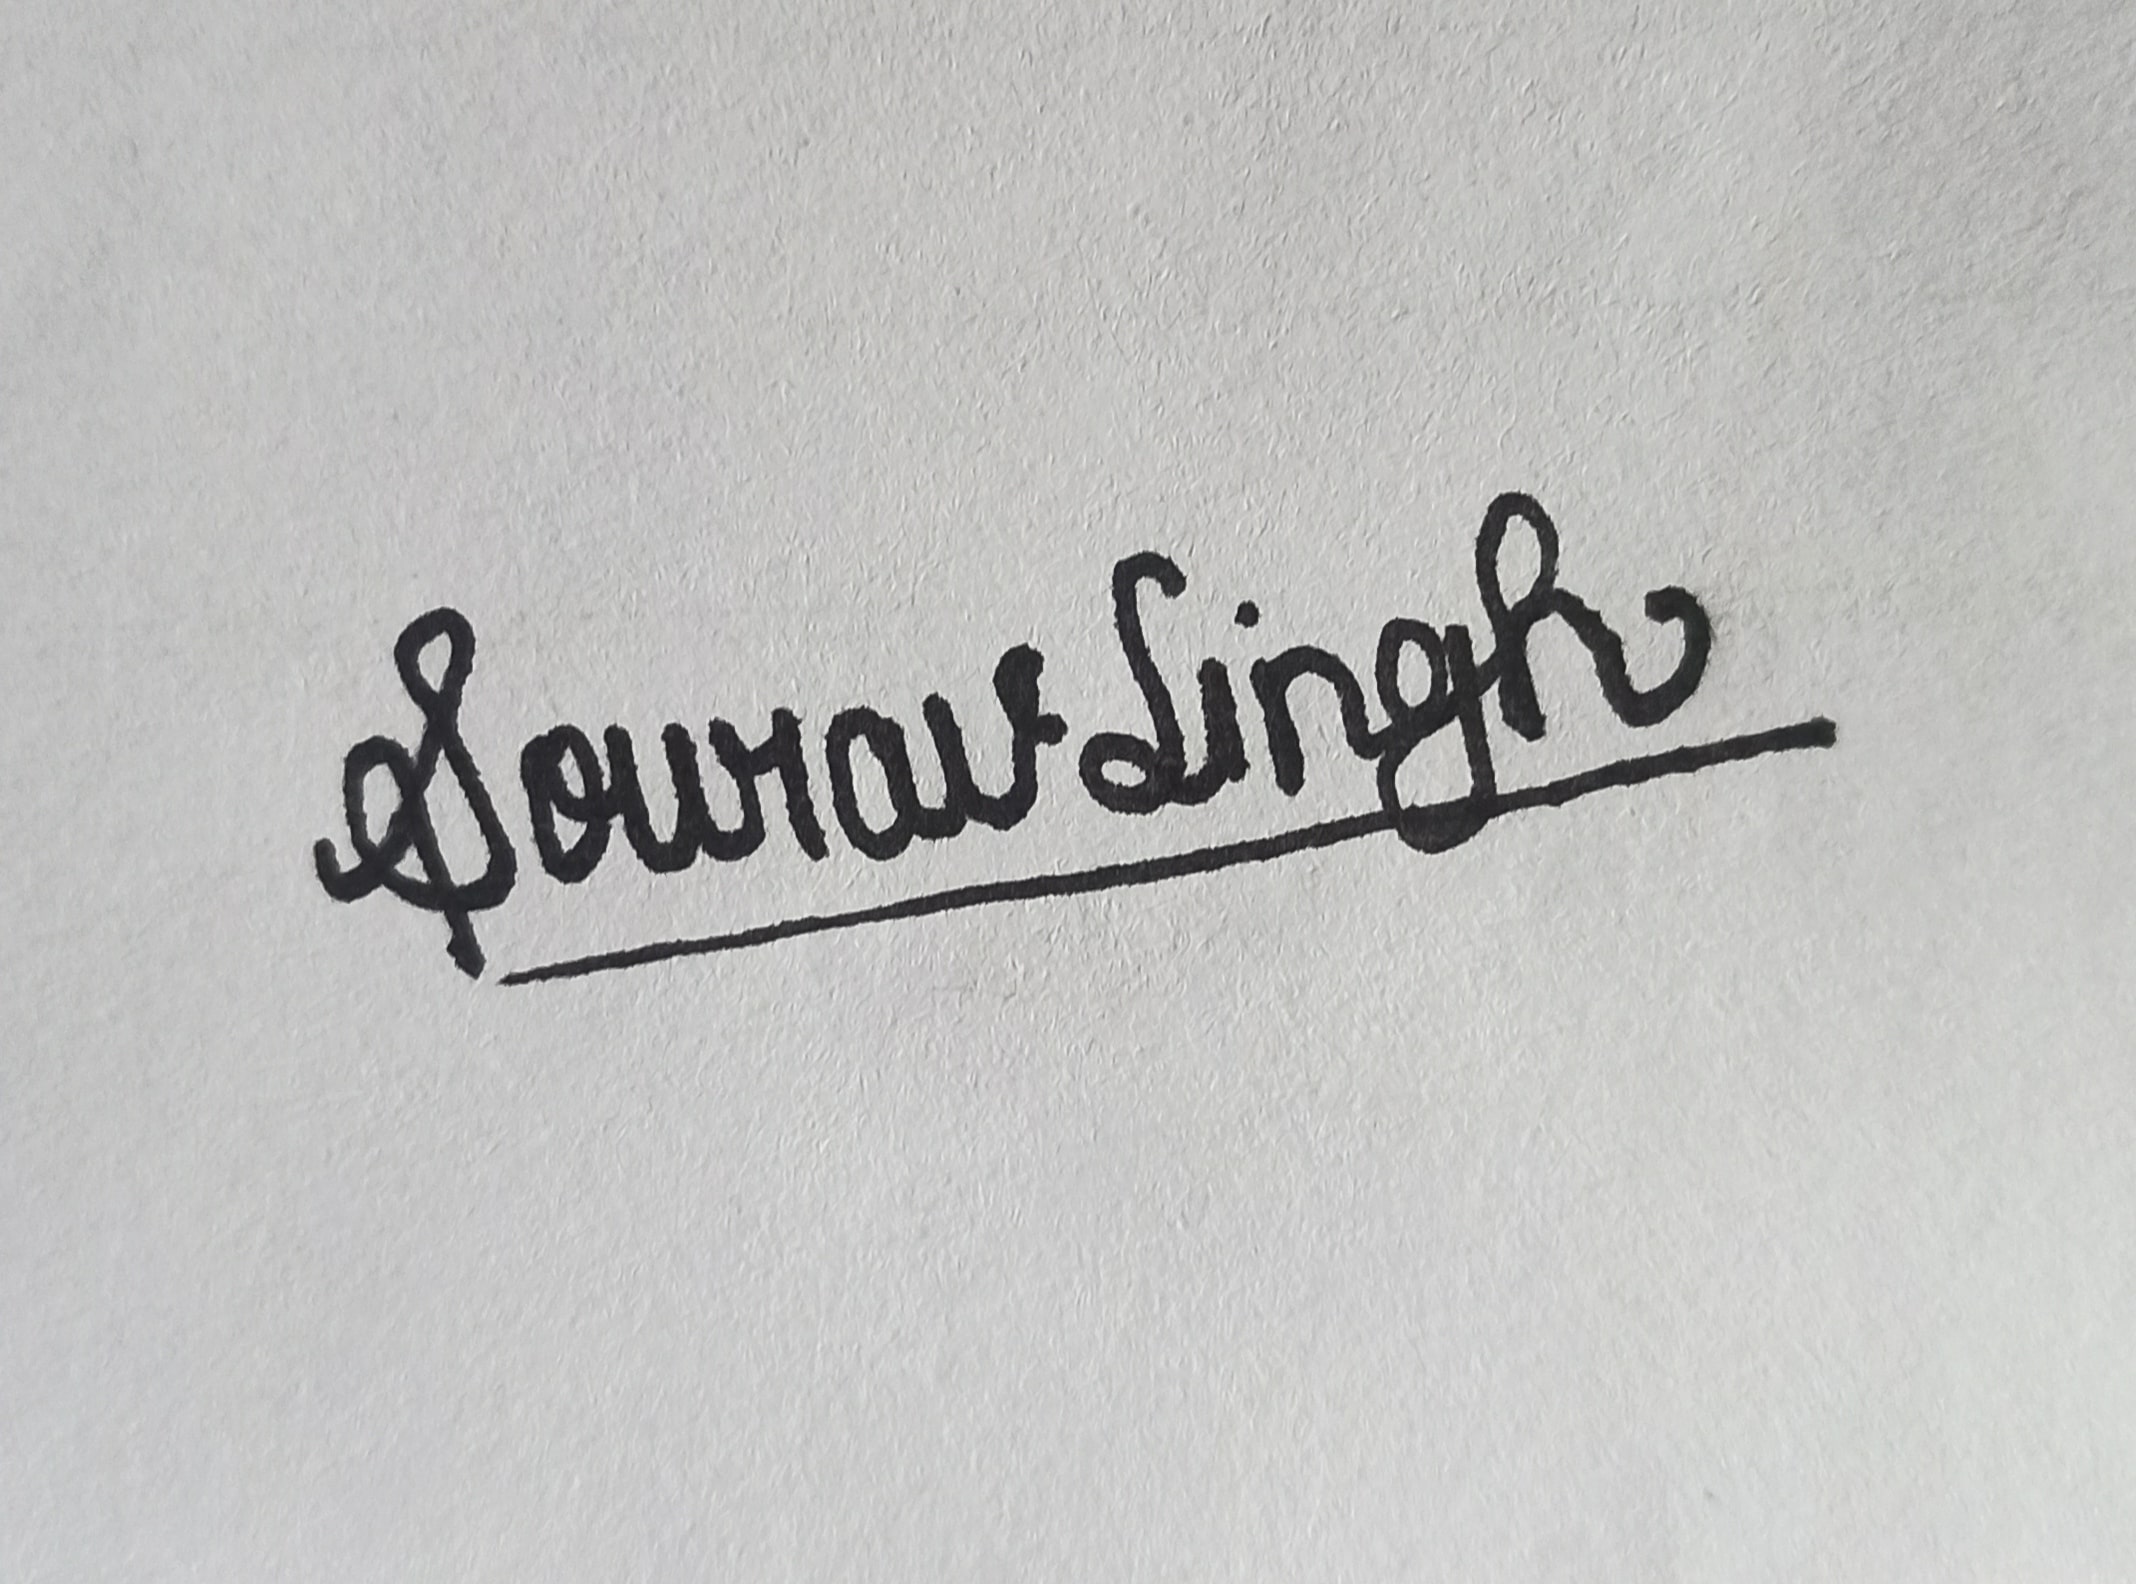 Sourav Singh